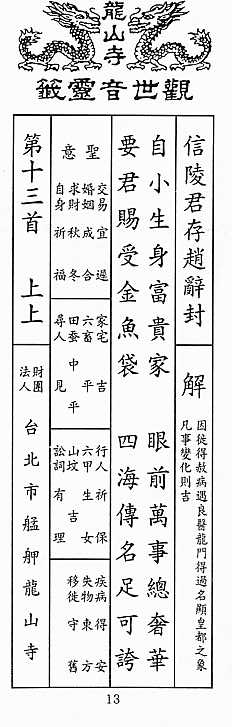 龍山寺
觀世音靈籤
信陵君存趙辭封
解
因徒得赦病遇良醫龍門得過名顯皇都之象
凡事變化則吉
自小生身富貴家 眼前萬事總奢華
要君賜受金魚袋 四海傳名足可誇
聖意
交易宜遲 家宅吉 行人祈保 疾病得安
婚姻成合 六畜平 六甲生女 失物東方
求財秋冬 田蚕中平 山墳吉 移徙守舊
自身祈福 尋人見 訟詞有理
第十三首 上上
財團法人
台北市艋舺龍山寺
13